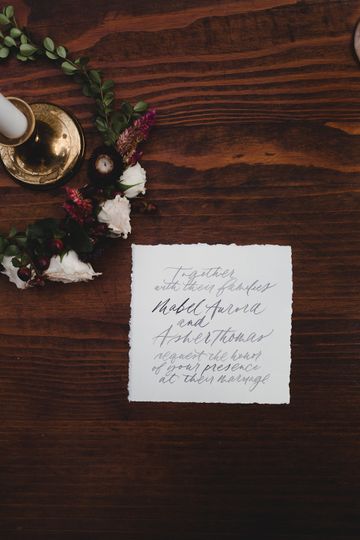 Together
with their families
Mabel Aurora
and
Asher Thomas
request the honor
of your presence
at their marriage